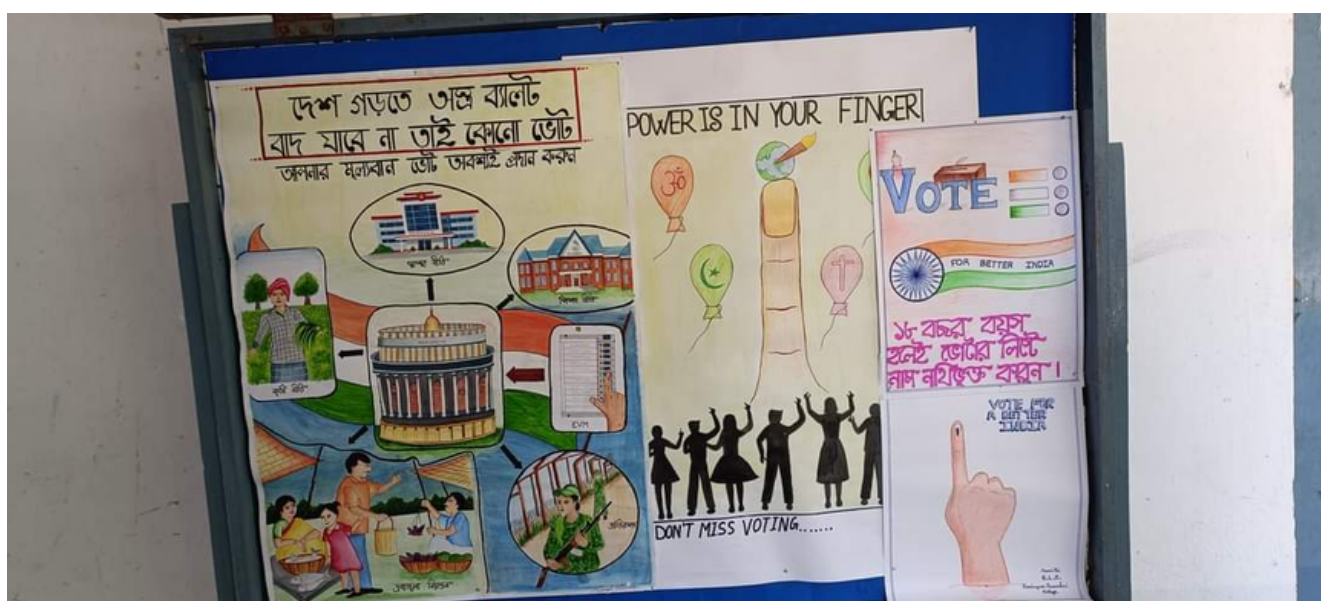 দেশ গড়তে অস্ত্র ব্যালট
বাদ যাবে না তাই কোনো ভোট
আপনার মূল্যবান ভোট অবশ্যই প্রদান করুন
কৃষি নীতি
EVM
POWER IS IN YOUR FINGER
ॐ
DON'T MISS VOTING.......
VOTE
FOR BETTER INDIA
১৮ বছর বয়স
হলেই ভোটার লিস্টে
নাম নথিভুক্ত করুন।
VOTE FOR
A BETTER
INDIA